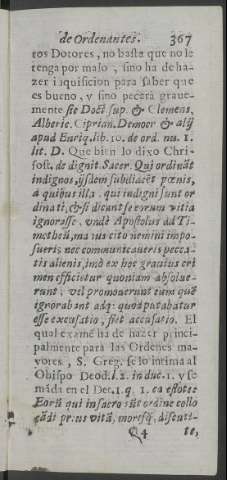 de Ordenantes. 367
tos Dotores, no basta que no le
tenga por malo, sino ha de ha-
zer inquisicion para saber que
es bueno, y sino pecará graue-
mente sic Doct. sup. & Clemens,
Alberic. Ciprian. Democr & alij
apud Enriq. lib. 10. de ord. nu. 1.
lit. D. Que bien lo dixo Chri-
sost. de dignit. Sacer. Qui ordinãt
indignos, ijsdem subdiacēt pœnis,
a quibus illa qui indigni sunt or
dinati, & si dicant se eorum vitia
ignorasse. vndè Apostolus ad Ti-
metheũ, manus cito nemini impo-
sueris nec communicaueris pecca-
tis alienis, imò ex hoc grauius cri
men efficietur quoniam absolue-
runt: vel promouerunt eum quē
ignorabant adq: quod putabatur
esse excusatio, fiet accusatio. El
qual examē ha de hazer princi-
palmente para las Ordenes ma-
yores, S. Greg. se lo intima al
Obispo Deod. l. 2. in duc. 1. y se
mãda en el Det. 1. q. 1. ea estote
Eorũ qui in sacro sũt ordine collo
cãdi prius vitã, moresq, discuti-
Q4 te,